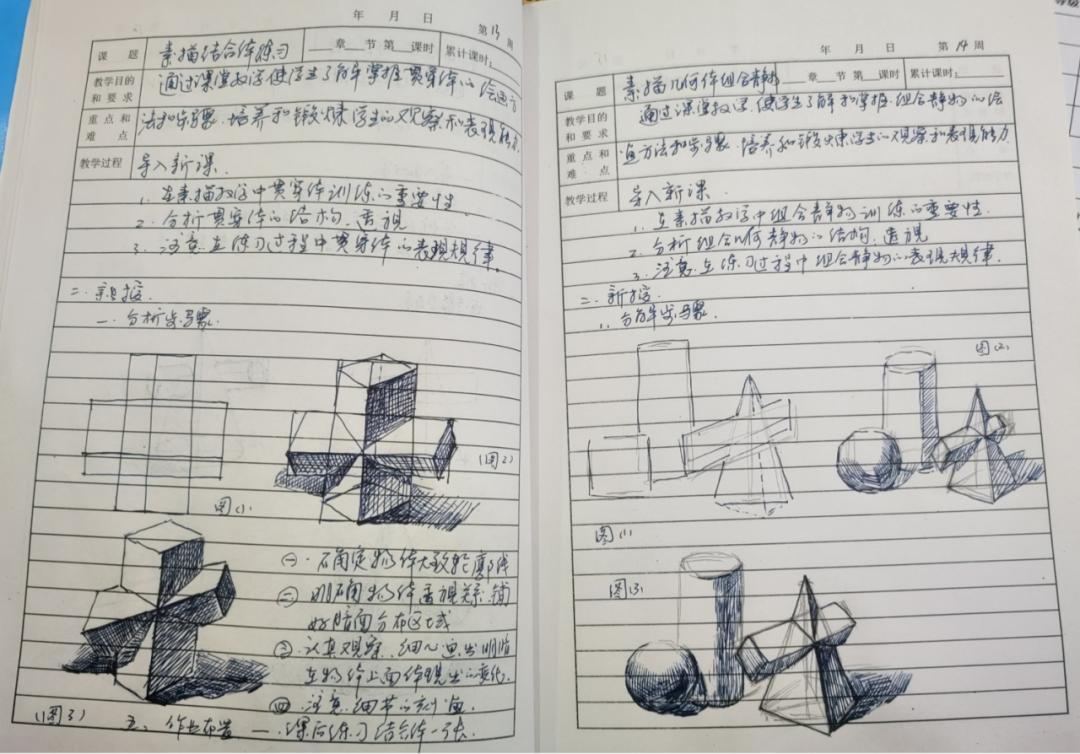 年 月 日 第13周
课 题 素描结合体练习 章 节 第 课时 累计课时:
教学目的和要求 通过课堂教学使学生了解掌握贯穿体的绘画方
重点和难点 法和步骤,培养和锻炼学生的观察和表现能力
教学过程 导入新课.
1. 在素描教学中贯穿体训练的重要性.
2. 分析贯穿体的结构.透视
3. 注意在练习过程中贯穿体的表现规律.
二. 新授.
一. 分析步骤.
图(1)
(图2)
(一). 确定物体大致轮廓线
(二) 明确物体透视关系,铺
好暗面分布区域
(三). 认真观察,细心画出明暗
在物体上面体现出的变化.
(四). 注意细节的刻画.
(图3)
五、作业布置 一.课后练习结合体一张.
年 月 日 第14周
课 题 素描几何体组合静物 章 节 第 课时 累计课时:
教学目的和要求 通过课堂教学,使学生了解和掌握组合静物的绘
重点和难点 画方法和步骤,培养和锻炼学生的观察和表现能力
教学过程 导入新课.
1. 在素描教学中组合静物训练的重要性.
2. 分析组合几何静物的结构.透视
3. 注意在练习过程中组合静物的表现规律.
二. 新授.
1. 分解步骤.
图(2)
图(1)
图(3)